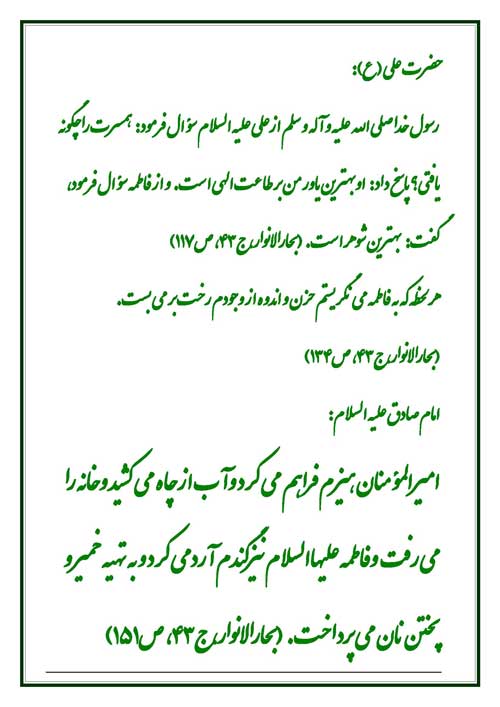 حضرت علی (ع):
رسول خدا صلی الله علیه و آله و سلم از علی علیه السلام سؤال فرمود: همسرت را چگونه
یافتی؟ پاسخ داد: او بهترین یاور من بر طاعت الهی است. و از فاطمه سؤال فرمود،
گفت: بهترین شوهر است. (بحارالانوار، ج ۴۳، ص ۱۱۷)
هر لحظه که به فاطمه می نگریستم حزن و اندوه از وجودم رخت بر می بست.
(بحارالانوار، ج ۴۳، ص ۱۳۴)
امام صادق علیه السلام:
امیرالمؤمنان هیزم فراهم می کرد و آب از چاه می کشید و خانه را
می رفت و فاطمه علیهاالسلام نیز گندم آرد می کرد و به تهیه خمیر و
پختن نان می پرداخت. (بحارالانوار، ج ۴۳، ص ۱۵۱)